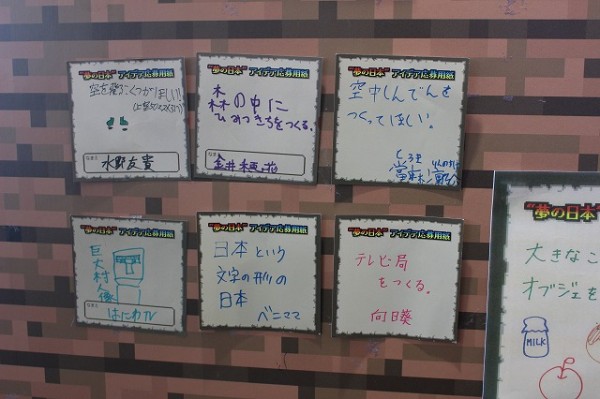 "夢の日本" アイデア応募用紙
空を飛ぶくつがほしい!!
水野友貴
"夢の日本" アイデア応募用紙
森の中に
ひみつきちをつくる。
"夢の日本" アイデア応募用紙
空中しんでんを
つくってほしい。
"夢の日本" アイデア応募用紙
巨大村人像
はにわTV
"夢の日本" アイデア応募用紙
日本という
文字の形の
日本
べニママ
"夢の日本" アイデア応募用紙
テレビ局
をつくる。
向日葵
"夢の日本"
大きなこ
オブジェを
MILK